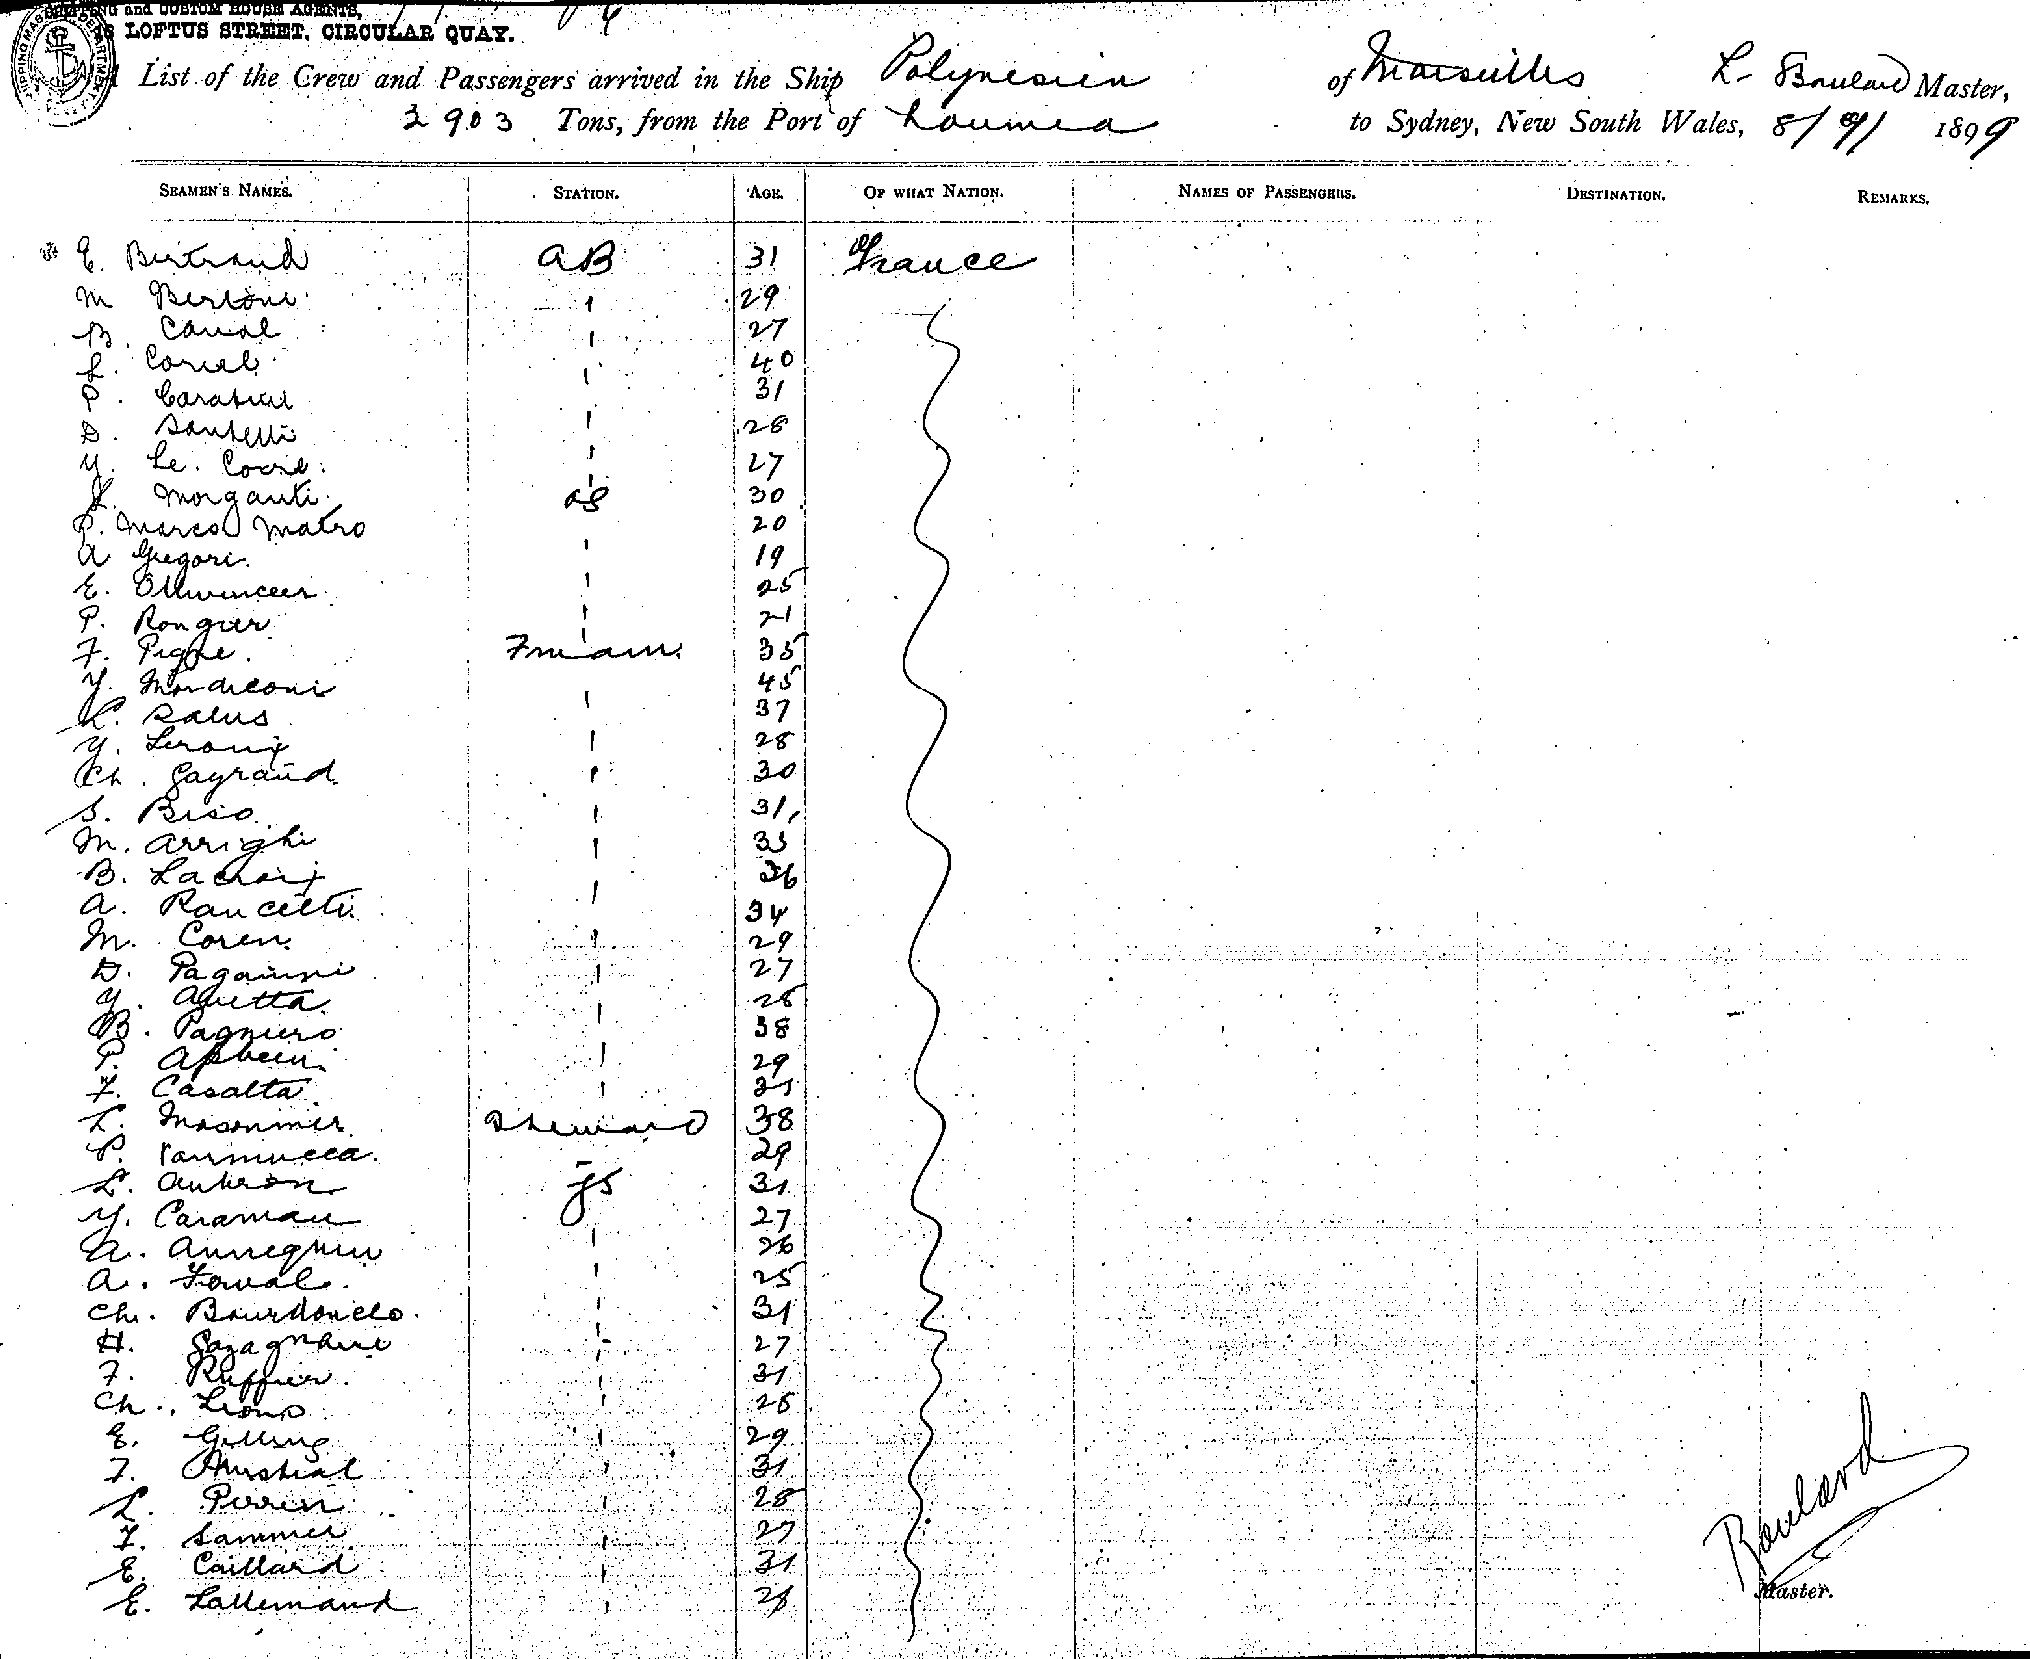 SHIPPING and CUSTOM HOUSE AGENTS,
16 LOFTUS STREET, CIRCULAR QUAY.
A List of the Crew and Passengers arrived in the Ship Polynesien of Marseilles L. Boulard Master,
2903 Tons, from the Port of Noumea to Sydney, New South Wales, 8/9/ 1899
SEAMEN'S NAMES. STATION. AGE. OF WHAT NATION. NAMES OF PASSENGERS. DESTINATION. REMARKS.
E. Bertrand AB 31 France
M Bertoni 29
B. Canal 27
L. 40
P. 31
D. Santelli 28
Y. Le. Corre 27
L. Morganti OS 30
P. Marco Matro 20
A Gregori 19
E. 25
P. Rongier 21
F. Pigne. 35
Y. Mordiconi 45
L. Salus 37
Y. Leroux 28
Ch. Gayraud 30
S. Biso. 31
M. Arrighi 33
B. Lacroix 36
A. Rancetti 34
M. Coren. 29
D. Paganini 27
Y. Guetta. 28
B. Pagniero 38
P. 29
F. Casalta 31
L. Masonnier Steward 38
P. Vannucca. 29
L. Autron 31
Y. Caraman 27
A. Annequin 26
A. 25
Ch. Bourdonclo. 31
H. Gazagnaire 27
F. Ruffier. 31
Ch. Lions 28
E. 29
F. Mistral 31
L. Perrin 28
F. Sammer 27
E. Caillard 31
E. Lallemand 28
Boulard
Master.